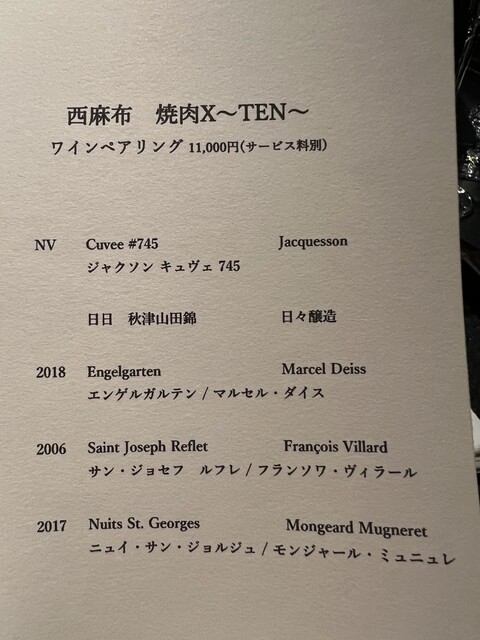 西麻布　焼肉X～TEN～
ワインペアリング 11,000円(サービス料別)
NV Cuvee #745 Jacquesson
ジャクソン キュヴェ 745
日日　秋津山田錦 日々醸造
2018 Engelgarten Marcel Deiss
エンゲルガルテン / マルセル・ダイス
2006 Saint Joseph Reflet François Villard
サン・ジョセフ　ルフレ / フランソワ・ヴィラール
2017 Nuits St. Georges Mongeard Mugneret
ニュイ・サン・ジョルジュ / モンジャール・ミュニュレ